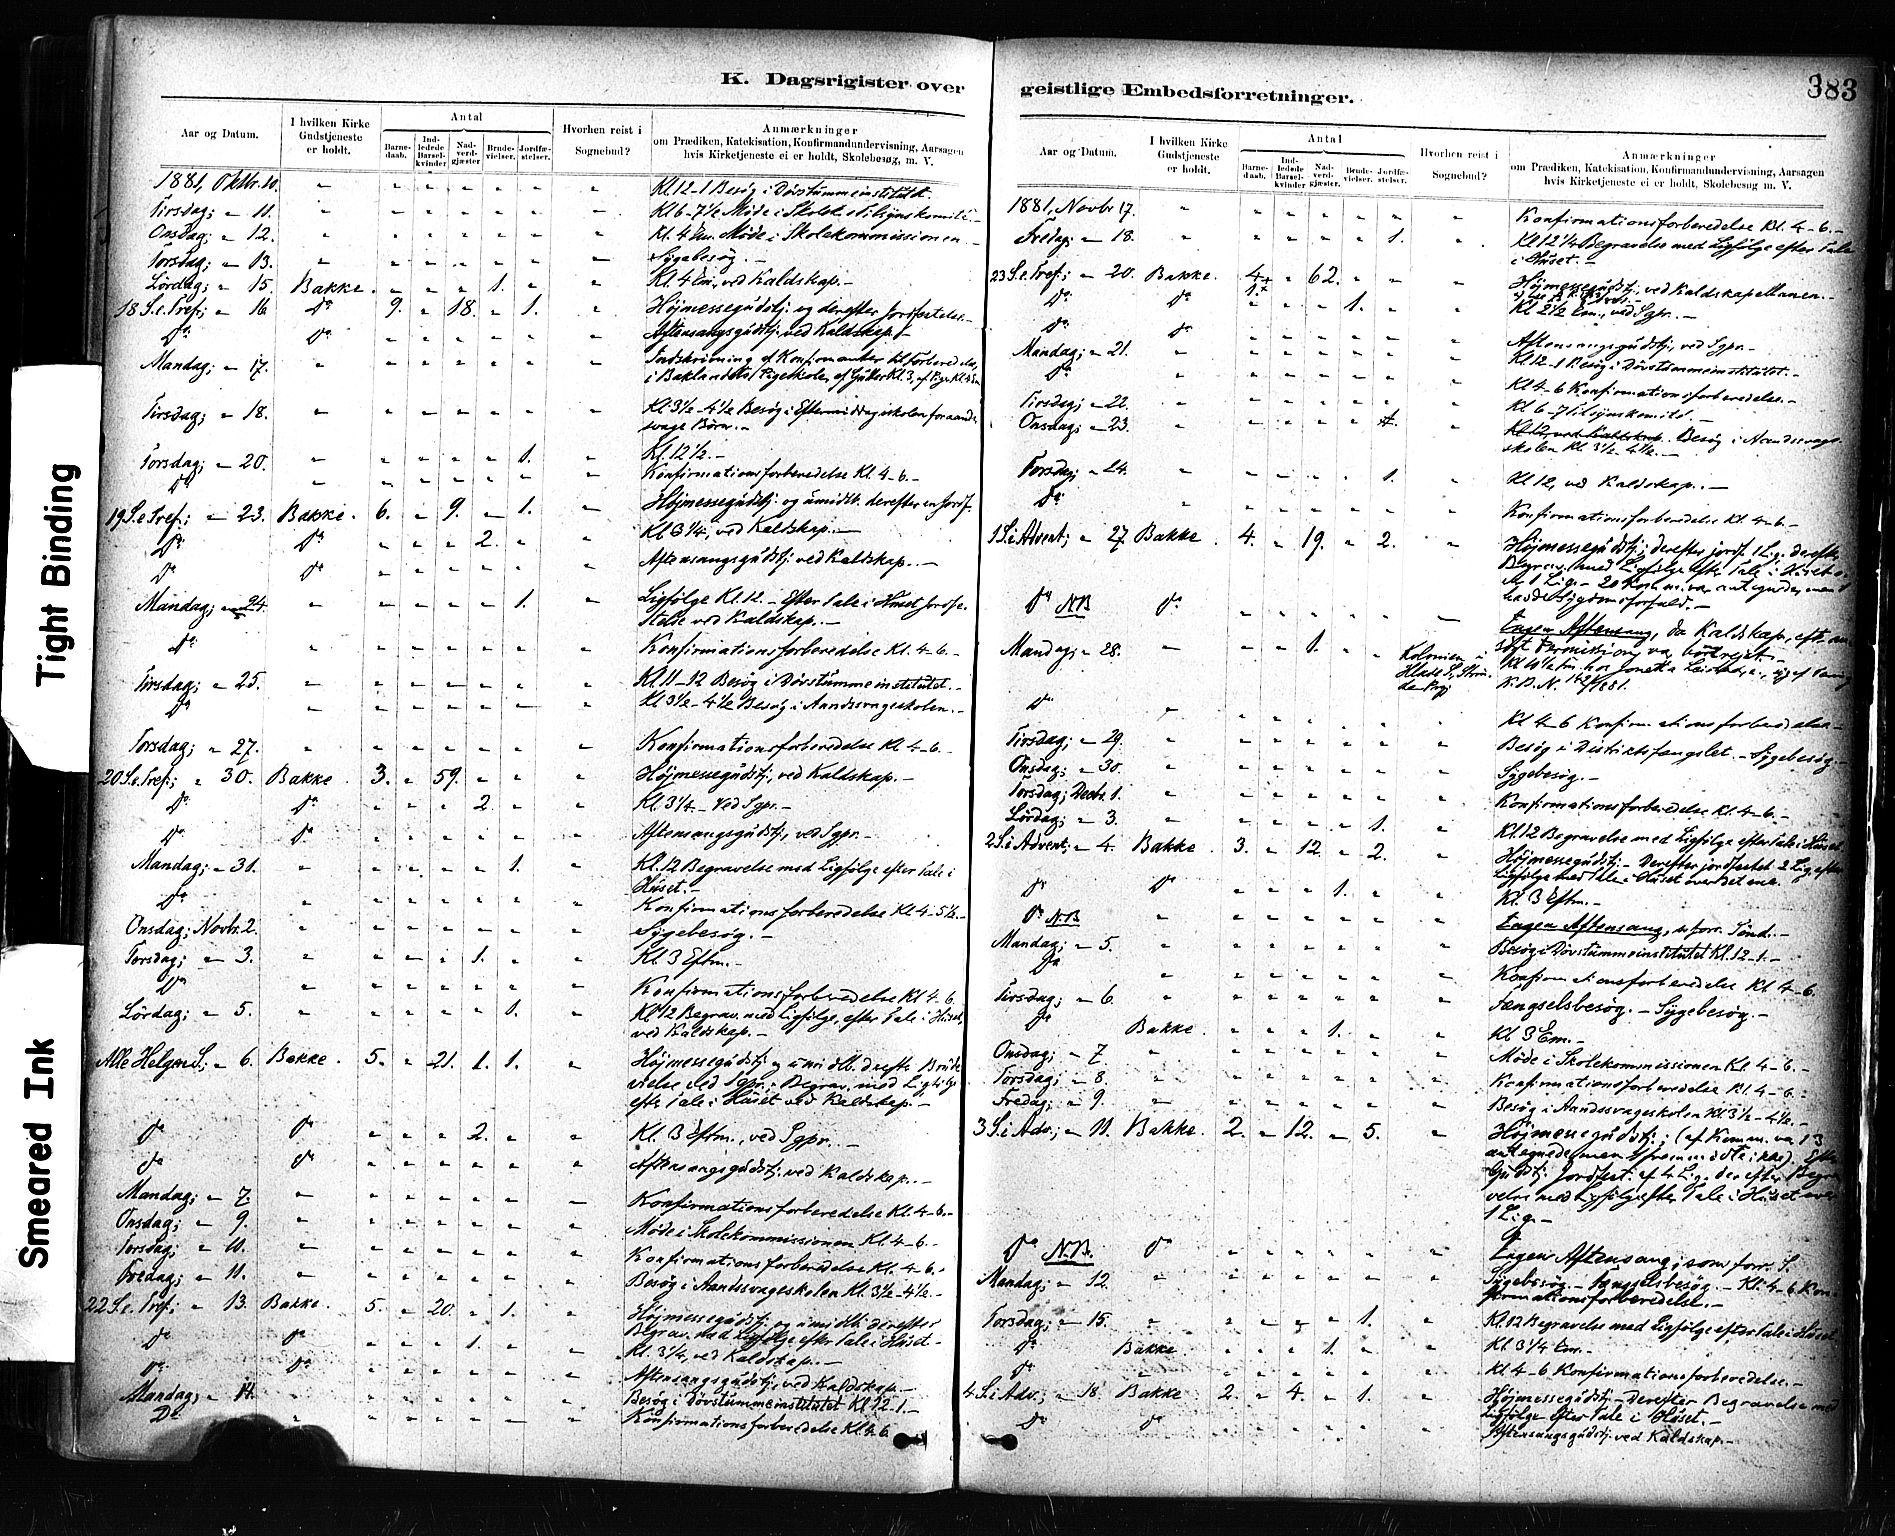 K. Dagsrigister over
geistlige Embedsforretninger.
383
Tight Binding
Smeared Ink
Aar og Datum.
I hvilken Kirke Gudstjeneste er holdt.
Antal
Barnedaab.
Indledede Barselkvinder
Nadverdgjæster
Brudevielser.
Jordfæstelser.
Hvorhen reist i Sognebud?
Anmærkninger
om Prædiken, Katekisation, Konfirmandundervisning, Aarsagen
hvis Kirketjeneste ei er holdt, Skolebesøg, m. V.
1881, Oktbr. 10. Kl. 12-1 Besøg i Døvstummeinstitutet.
Tirsdag; " 11. Kl 6-7½ Møde i Skolek. Tilsynskomité.-
Onsdag; " 12. Kl. 4 Em. Møde i Skolekommissionen
Torsdag; " 13. Sygebesøg. -
Lördag; " 15. Bakke. 1. Kl. 4 Em., ved Kaldskap. -
18 S.e.Tref.; " 16 Do 9. 18. 1. Höjmessegudstj. og derefter Jordfæstelse.-
Do Do Aftensangsgudstj. ved Kaldskap. -
Mandag; " 17. Indskrivning af Konfirmanter til Forberedelse,
i Baklandets Pigeskole, af Gutter Kl. 3, af Piger Kl. 4 Em
Tirsdag; " 18. Kl. 3½-4½ Besøg i Eftermiddagsskolen for aands-
svage Börn. -
Torsdag; " 20. 1. Kl. 12½. -
Do Konfirmationsforberedelse Kl. 4-6. -
19 S.e.Tref.; " 23. Bakke. 6. 9. 1. Höjmessegudstj. og umidlb. derefter en Jordf.
Do Do 2. Kl. 3¼, ved Kaldskap. -
Do Do Aftensangsgudstj. ved Kaldskap. -
Mandag; " 24. 1. Ligfölge Kl. 12. - Efter Tale i Huset Jordfæ-
stelse ved Kaldskap. -
Do Konfirmationsforberedelse Kl. 4-6. -
Tirsdag; " 25. Kl. 11-12 Besøg i Døvstummeinstitutet. -
Do Kl 3½-4½ Besøg i Aandssvageskolen. -
Torsdag; " 27. Konfirmationsforberedelse Kl. 4-6. -
20 S.e.Tref.; " 30. Bakke 3. 59. Höjmessegudstj., ved Kaldskap. -
Do Do 2. Kl. 3¼ - Ved Sgpr. -
Do Do Aftensangsgudstj., ved Sgpr. -
Mandag; " 31. 1. Kl. 12 Begravelse med Ligfölge efter Tale i
Huset. -
Do Konfirmationsforberedelse Kl. 4-5½. -
Onsdag; Novbr. 2. Sygebesøg. -
Torsdag; " 3. 1. Kl. 3 Eftm. -
Do Konfirmationsforberedelse Kl 4-6.
Lördag; " 5. 1. Kl 12 Begrav. med Ligfölge, efter Tale i Huset,
ved Kaldskap. -
Alle Helgens S.; " 6. Bakke. 5. 21. 1. 1. Höjmessegudstj og umidlb. derefter Brude-
vielse ved Sgpr.; Begrav. med Ligfölge
efter Tale i Huset ved Kaldskap. -
Do Do 2. Kl. 3 Eftm., ved Sgpr. -
Do Do Aftensangsgudstj. ved Kaldskap. -
Mandag; " 7. Konfirmationsforberedelse Kl. 4-6. -
Onsdag; " 9. Møde i Skolekommissionen Kl. 4-6. -
Torsdag; " 10. Konfirmationsforberedelse Kl. 4-6. -
Fredag; " 11. Besøg i Aandssvageskolen Kl. 3½-4½. -
22 S.e.Tref.; " 13. Bakke. 5. 20. 1. Höjmessegudstj. og umidlb. derefter
Begrav. med Ligfölge efter Tale i Huset -
Do Do 1. Kl. 3¼, ved Kaldskap. -
Do Do Aftensangsgudstj., ved Kaldskap. -
Mandag; " 14. Besøg i Døvstummeinstitutet Kl 12-1. -
Do Konfirmationsforberedelse Kl. 4-6
Aar og Datum.
I hvilken Kirke Gudstjeneste er holdt.
Antal
Barnedaab.
Indledede Barselkvinder
Nadverdgjæster.
Brudevielser.
Jordfæstelser.
Hvorhen reist i Sognebud?
Anmærkninger
om Prædiken, Katekisation, Konfirmandundervisning, Aarsagen
hvis Kirketjeneste ei er holdt, Skolebesøg m. V.
1881, Novbr 17. Konfirmationsforberedelse Kl. 4-6. -
Fredag; " 18. 1. Kl 12¼ Begravelse med Ligfölge efter Tale
i Huset. -
23 S.e.Tref.; " 20. Bakke. 4 62. Höjmessegudstj. ved Kaldskapellanen. -
Do Do 1. 1. Kl 2½ Em., ved Sgpr. -
Do Do Aftensangsgudstj., ved Sgpr. -
Mandag; " 21. Kl. 12-1 Besøg i Døvstummeinstitutet. -
Do Kl 4-6 Konfirmationsforberedelse. -
Tirsdag; " 22. Kl 6-7 Tilsynskomité. -
Onsdag; " 23. Kl 12, ved Kaldskap. Besøg i Aandssvage-
skolen Kl. 3½-4½. -
Torsdag; " 24. 1. Kl 12, ved Kaldskap. -
Do Konfirmationsforberedelse Kl. 4-6. -
1 S.i Advent; " 27. Bakke 4. 19. 2. Höjmessegudstj; derefter Jordf. 1 Lig. derefter
Begrav. med Ligfölge efter Tale i Huset
1 Lig. - 20 Kom. var antegnede, men 1
havde Sygdomsforfald. -
Do NB Do Ingen Aftensang, da Kaldskap. efter
Permission var bortrejst. -
Mandag; " 28. 1. Kolonien i Strinde Præg
K.D.N. 1881.
Do Kl 4-6 Konfirmationsforberedelse -
Tirsdag; " 29. Besøg i Distriktsfængslet. - Sygebesøg. -
Onsdag; " 30. Sygebesøg. -
Torsdag; Decbr. 1. Konfirmationsforberedelse Kl. 4-6. -
Lördag; " 3. 1. Kl. 12 Begravelse med Ligfölge efter Tale i Huset
2 S.i Advent; " 4. Bakke 3. 12. 2. Höjmessegudstj. - Derefter jordfæstet 2 Lig, efter
Ligfölge med Tale i Huset over det ene.
Do Do 1. Kl. 3 Eftm. -
Do NB Ingen Aftensang, s. forr. Sönd. -
Mandag; " 5. Besøg i Døvstummeinstitutet Kl. 12-1. -
Do Konfirmationsforberedelse Kl 4-6.
Tirsdag; " 6. Fængselsbesøg. - Sygebesøg. -
Do Bakke. 1. Kl 3 Em. -
Onsdag; " 7 Møde i Skolekommissionen Kl. 4-6. -
Torsdag; " 8. Konfirmationsforberedelse Kl 4-6. -
Fredag; " 9. Besøg i Aandssvageskolen Kl 3½-4½. -
3 S.i Adv.; " 11. Bakke. 2. 12. 5. Höjmessegudstj.; (af Komm. var 13
antegnede, men 1 fremmödte ikke). Efter
Gudstj. Jordfæst. af 4 Lig, derefter Begra-
velse med Ligfölge efter Tale i Huset over
1 Lig. -
Do N.B. Do Ingen Aftensang, som forr. S.
Mandag; " 12. Sygebesøg. - Fængselsbesøg. - Kl. 4-6 Kon-
firmationsforberedelse. -
Torsdag; " 15. 1. Kl. 12 Begravelse med Ligfölge efter Tale i Huset
Do Bakke 1. Kl 3¼ Em. -
Do Kl. 4-6 Konfirmationsforberedelse. -
4 S.i Adv.; " 18. Bakke 2. 4. 1. Höjmessegudstj. Derefter Begravelse med
Ligfölge efter Tale i Huset. -
Do Do Aftensangsgudstj. ved Kaldskap. -